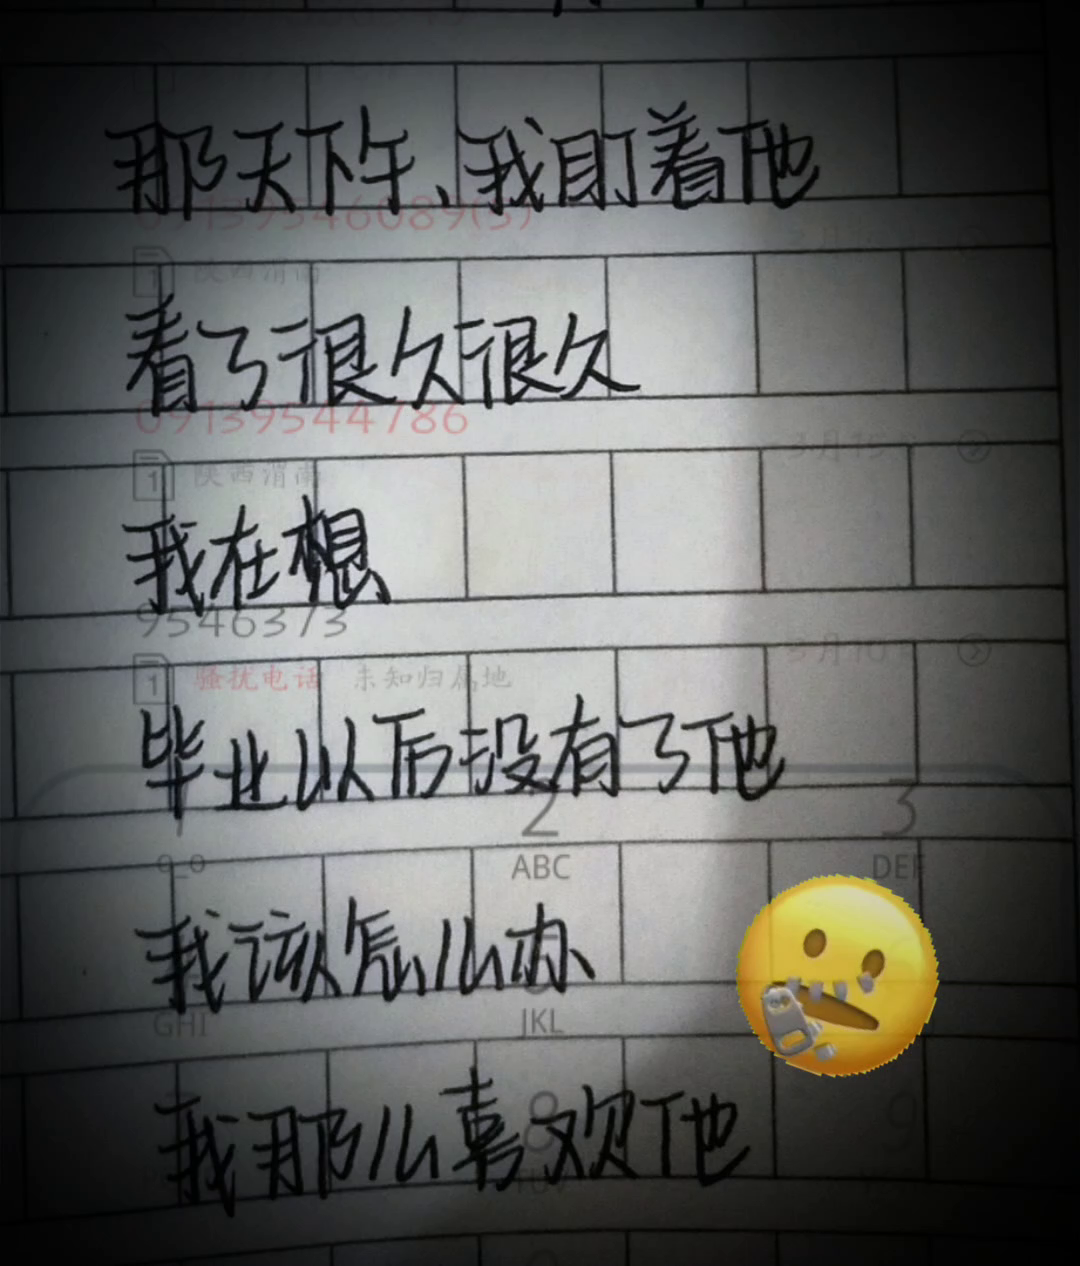 那天下午、我盯着他
09139546089(3)
陕西渭南
看了很久很久
09139544786
3月19
1 陕西渭南
我在想、
9546373
3月10
1 骚扰电话 未知归属地
毕业以后没有了他
1 2 3
ABC DEF
我该怎么办
GHI JKL
我那么喜欢他
8 9